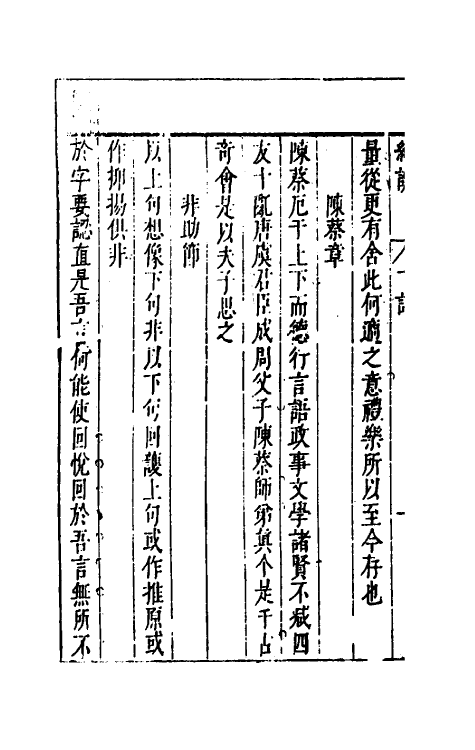 量從更有舍此何適之意禮樂所以至今存也
陳蔡章
陳蔡厄于上下而德行言語政事文學諸賢不減四
友十亂唐虞君臣成周父子陳蔡師弟眞个是千古
奇會是以夫子思之
非助節
以上句想像下句非以下句回護上句或作推原或
作抑揚俱非
於字要認值是吾言何能使回悅回於吾言無所不